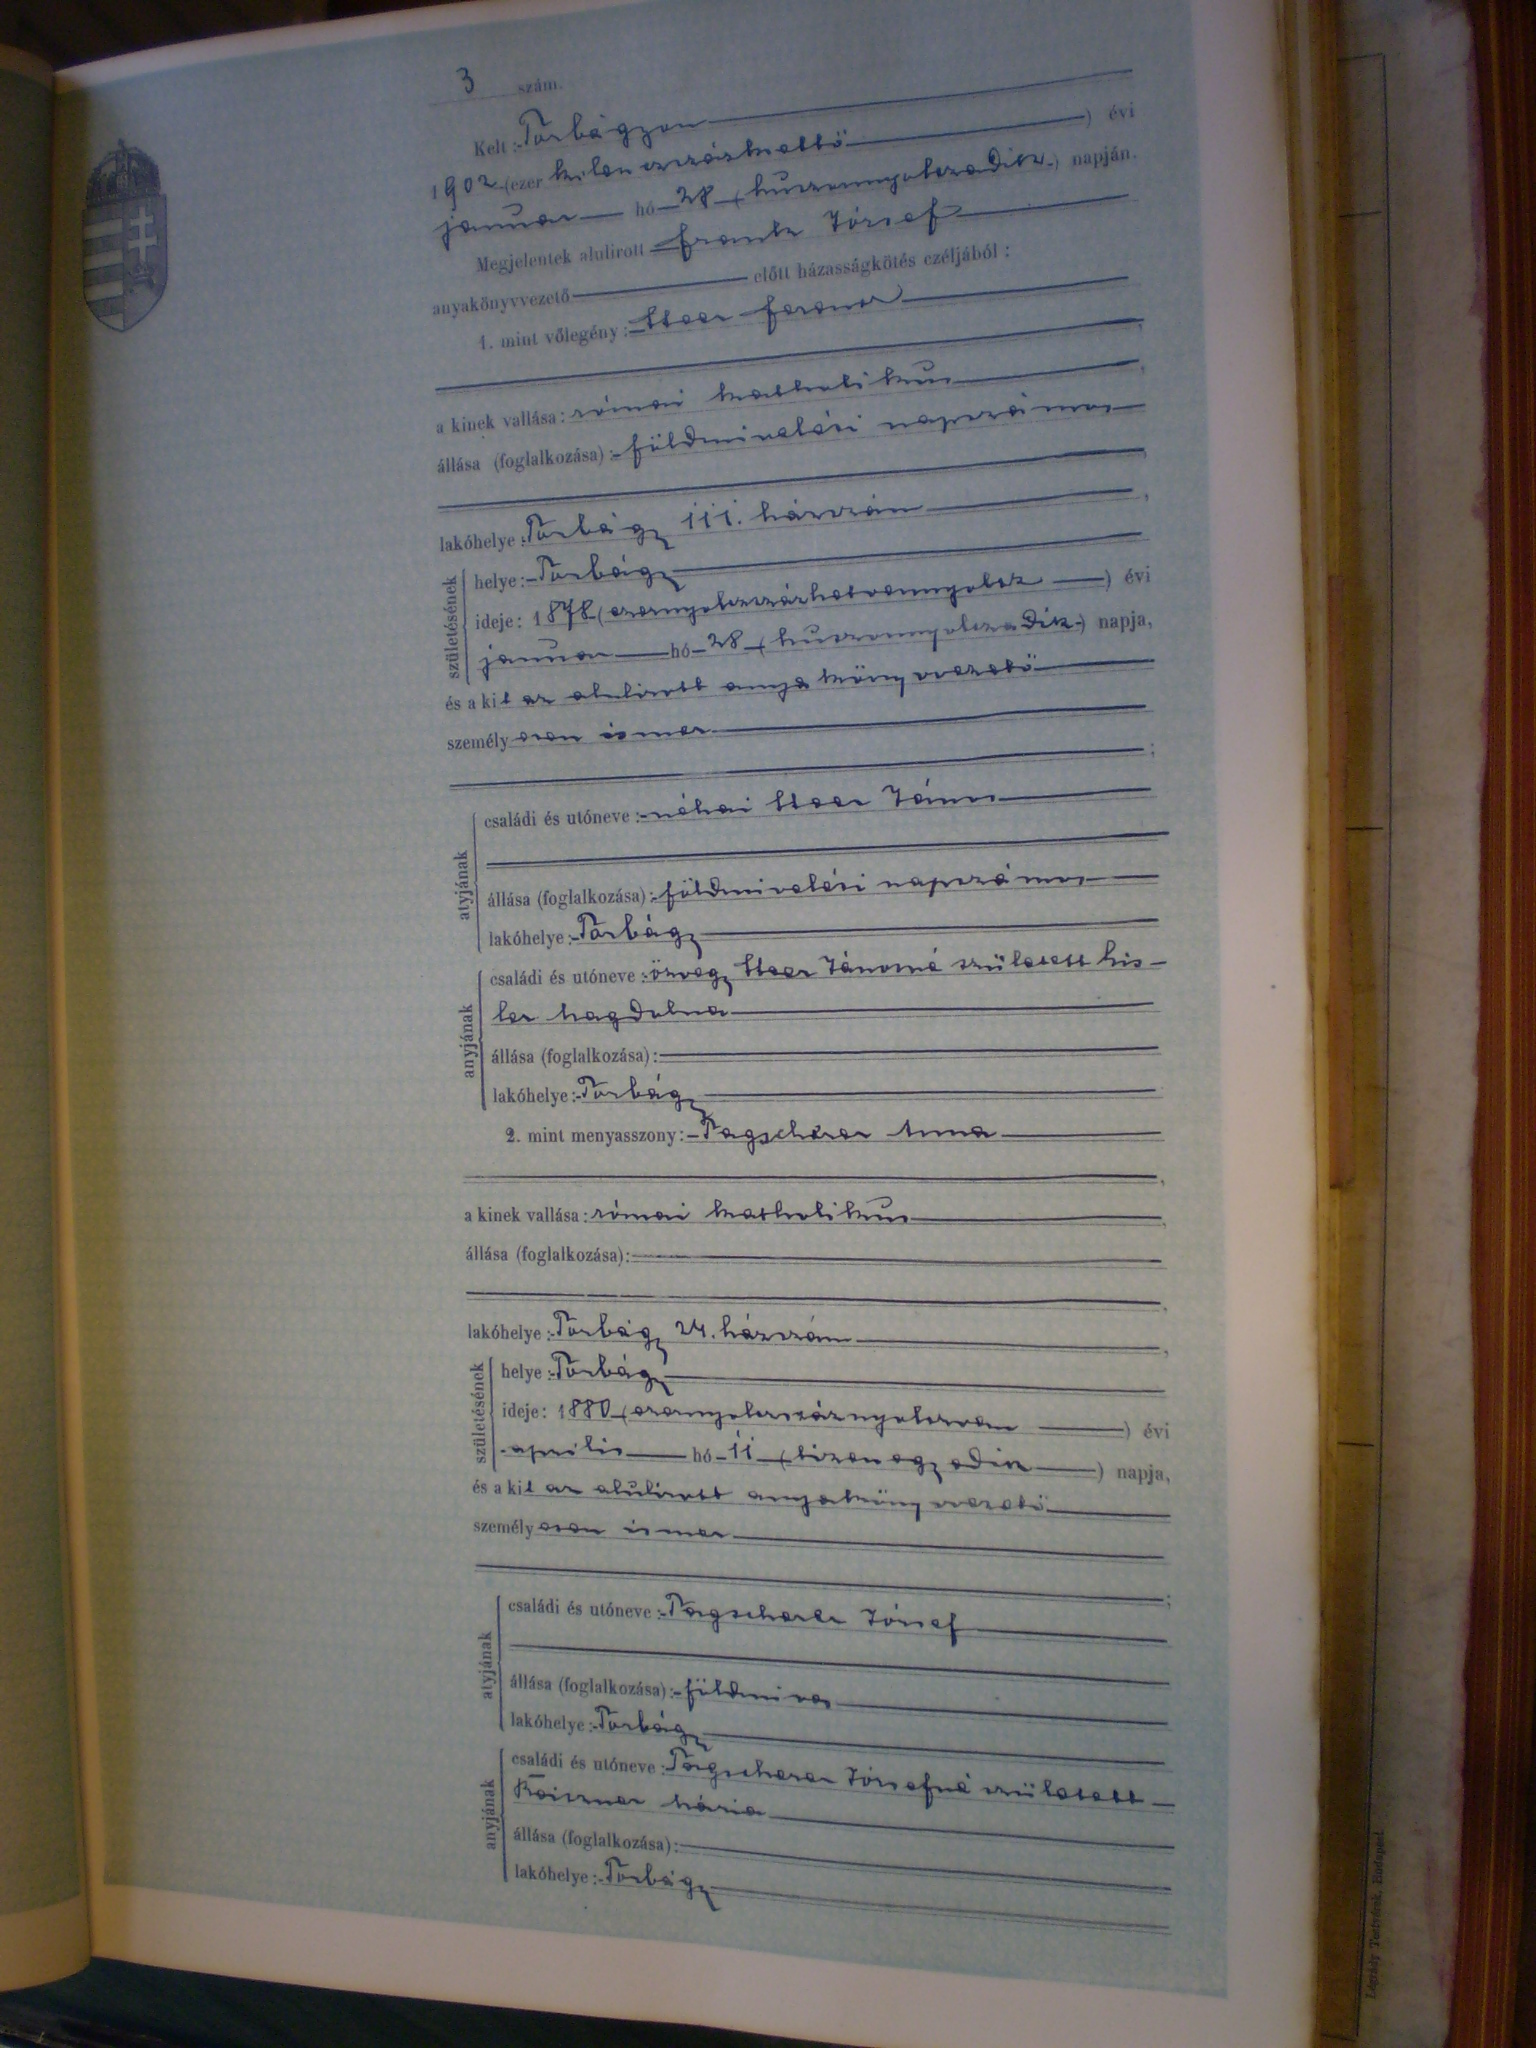 3 szám.
Kelt: Torbágyon
1902 (ezer kilenczszázkettő) évi
januar hó 28 (huszonnyolczadik) napján.
Megjelentek alulirott Frank József
anyakönyvvezető előtt házasságkötés czéljából:
1. mint vőlegény: Stoer Ferencz
a kinek vallása: római katholikus
állása (foglalkozása): földmivelési napszámos
lakóhelye: Torbágy 111. házszám
születésének
helye: Torbágy
ideje: 1878 (ezernyolczszázhetvennyolcz) évi
januar hó 28 (huszonnyolczadik) napja,
és a kit az alulirott anyakönyvvezető
személyesen ismer
;
atyjának
családi és utóneve: néhai Stoer János
állása (foglalkozása): földmivelési napszámos
lakóhelye: Torbágy
anyjának
családi és utóneve: özvegy Stoer Jánosné született
Magdolna
állása (foglalkozása):
lakóhelye: Torbágy
2. mint menyasszony: Tagscherer Anna
a kinek vallása: római katholikus
állása (foglalkozása):
lakóhelye: Torbágy 24. házszám
születésének
helye: Torbágy
ideje: 1880 (ezernyolczszáznyolczvan) évi
április hó 11 (tizenegyedik) napja,
és a kit az alulirott anyakönyvvezető
személyesen ismer
;
atyjának
családi és utóneve: Tagscherer József
állása (foglalkozása): földmives
lakóhelye: Torbágy
anyjának
családi és utóneve: Tagscherer Józsefné született
Mária
állása (foglalkozása):
lakóhelye: Torbágy
Légrády Testvérek, Budapest